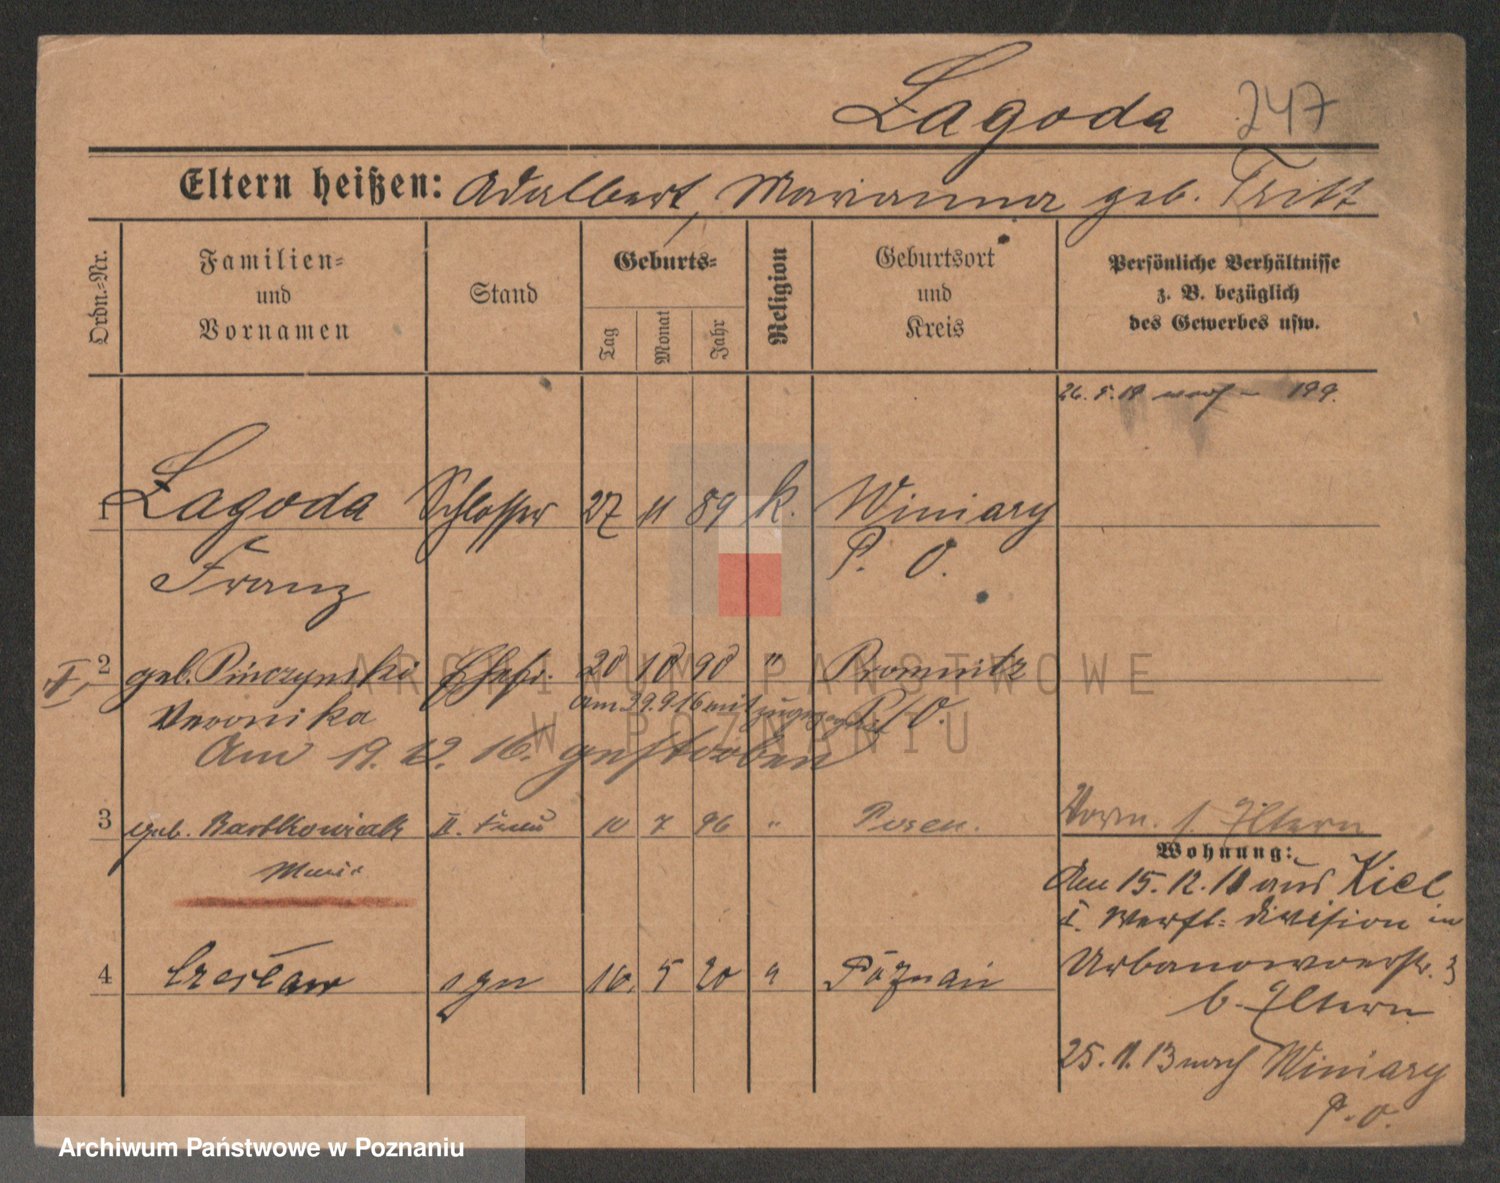 Lagoda 247
Eltern heißen: Adalbert, Marianna geb. Tritt
Ordn.-Nr.
Familien-
und
Vornamen
Stand
Geburts-
Tag
Monat
Jahr
Religion
Geburtsort
und
Kreis
Persönliche Verhältnisse
z. B. bezüglich
des Gewerbes usw.
199.
1 Lagoda Schlosser 27 11 89 k. Winiary
Franz P. O.
II. 2 geb. Pinczynski Ehefr. 20 10 90 " Bromnitz
Am 29.9.16 mit zugezogen
Veronika P/O.
Am 19. 12. 16. gestorben
3 geb. Bartkowiak II. Frau 10 7 96 " Posen.
Marie
Vorm. s. Eltern
Wohnung:
Am 15.12.18 aus Kiel
I. Werft-division in
Urbanowoerstr. 3
b. Eltern
4 Czesław syn 10. 5 20 " Poznań
25.11.13 nach Winiary
P.O.
ARCHIWUM PAŃSTWOWE
W POZNANIU
Archiwum Państwowe w Poznaniu